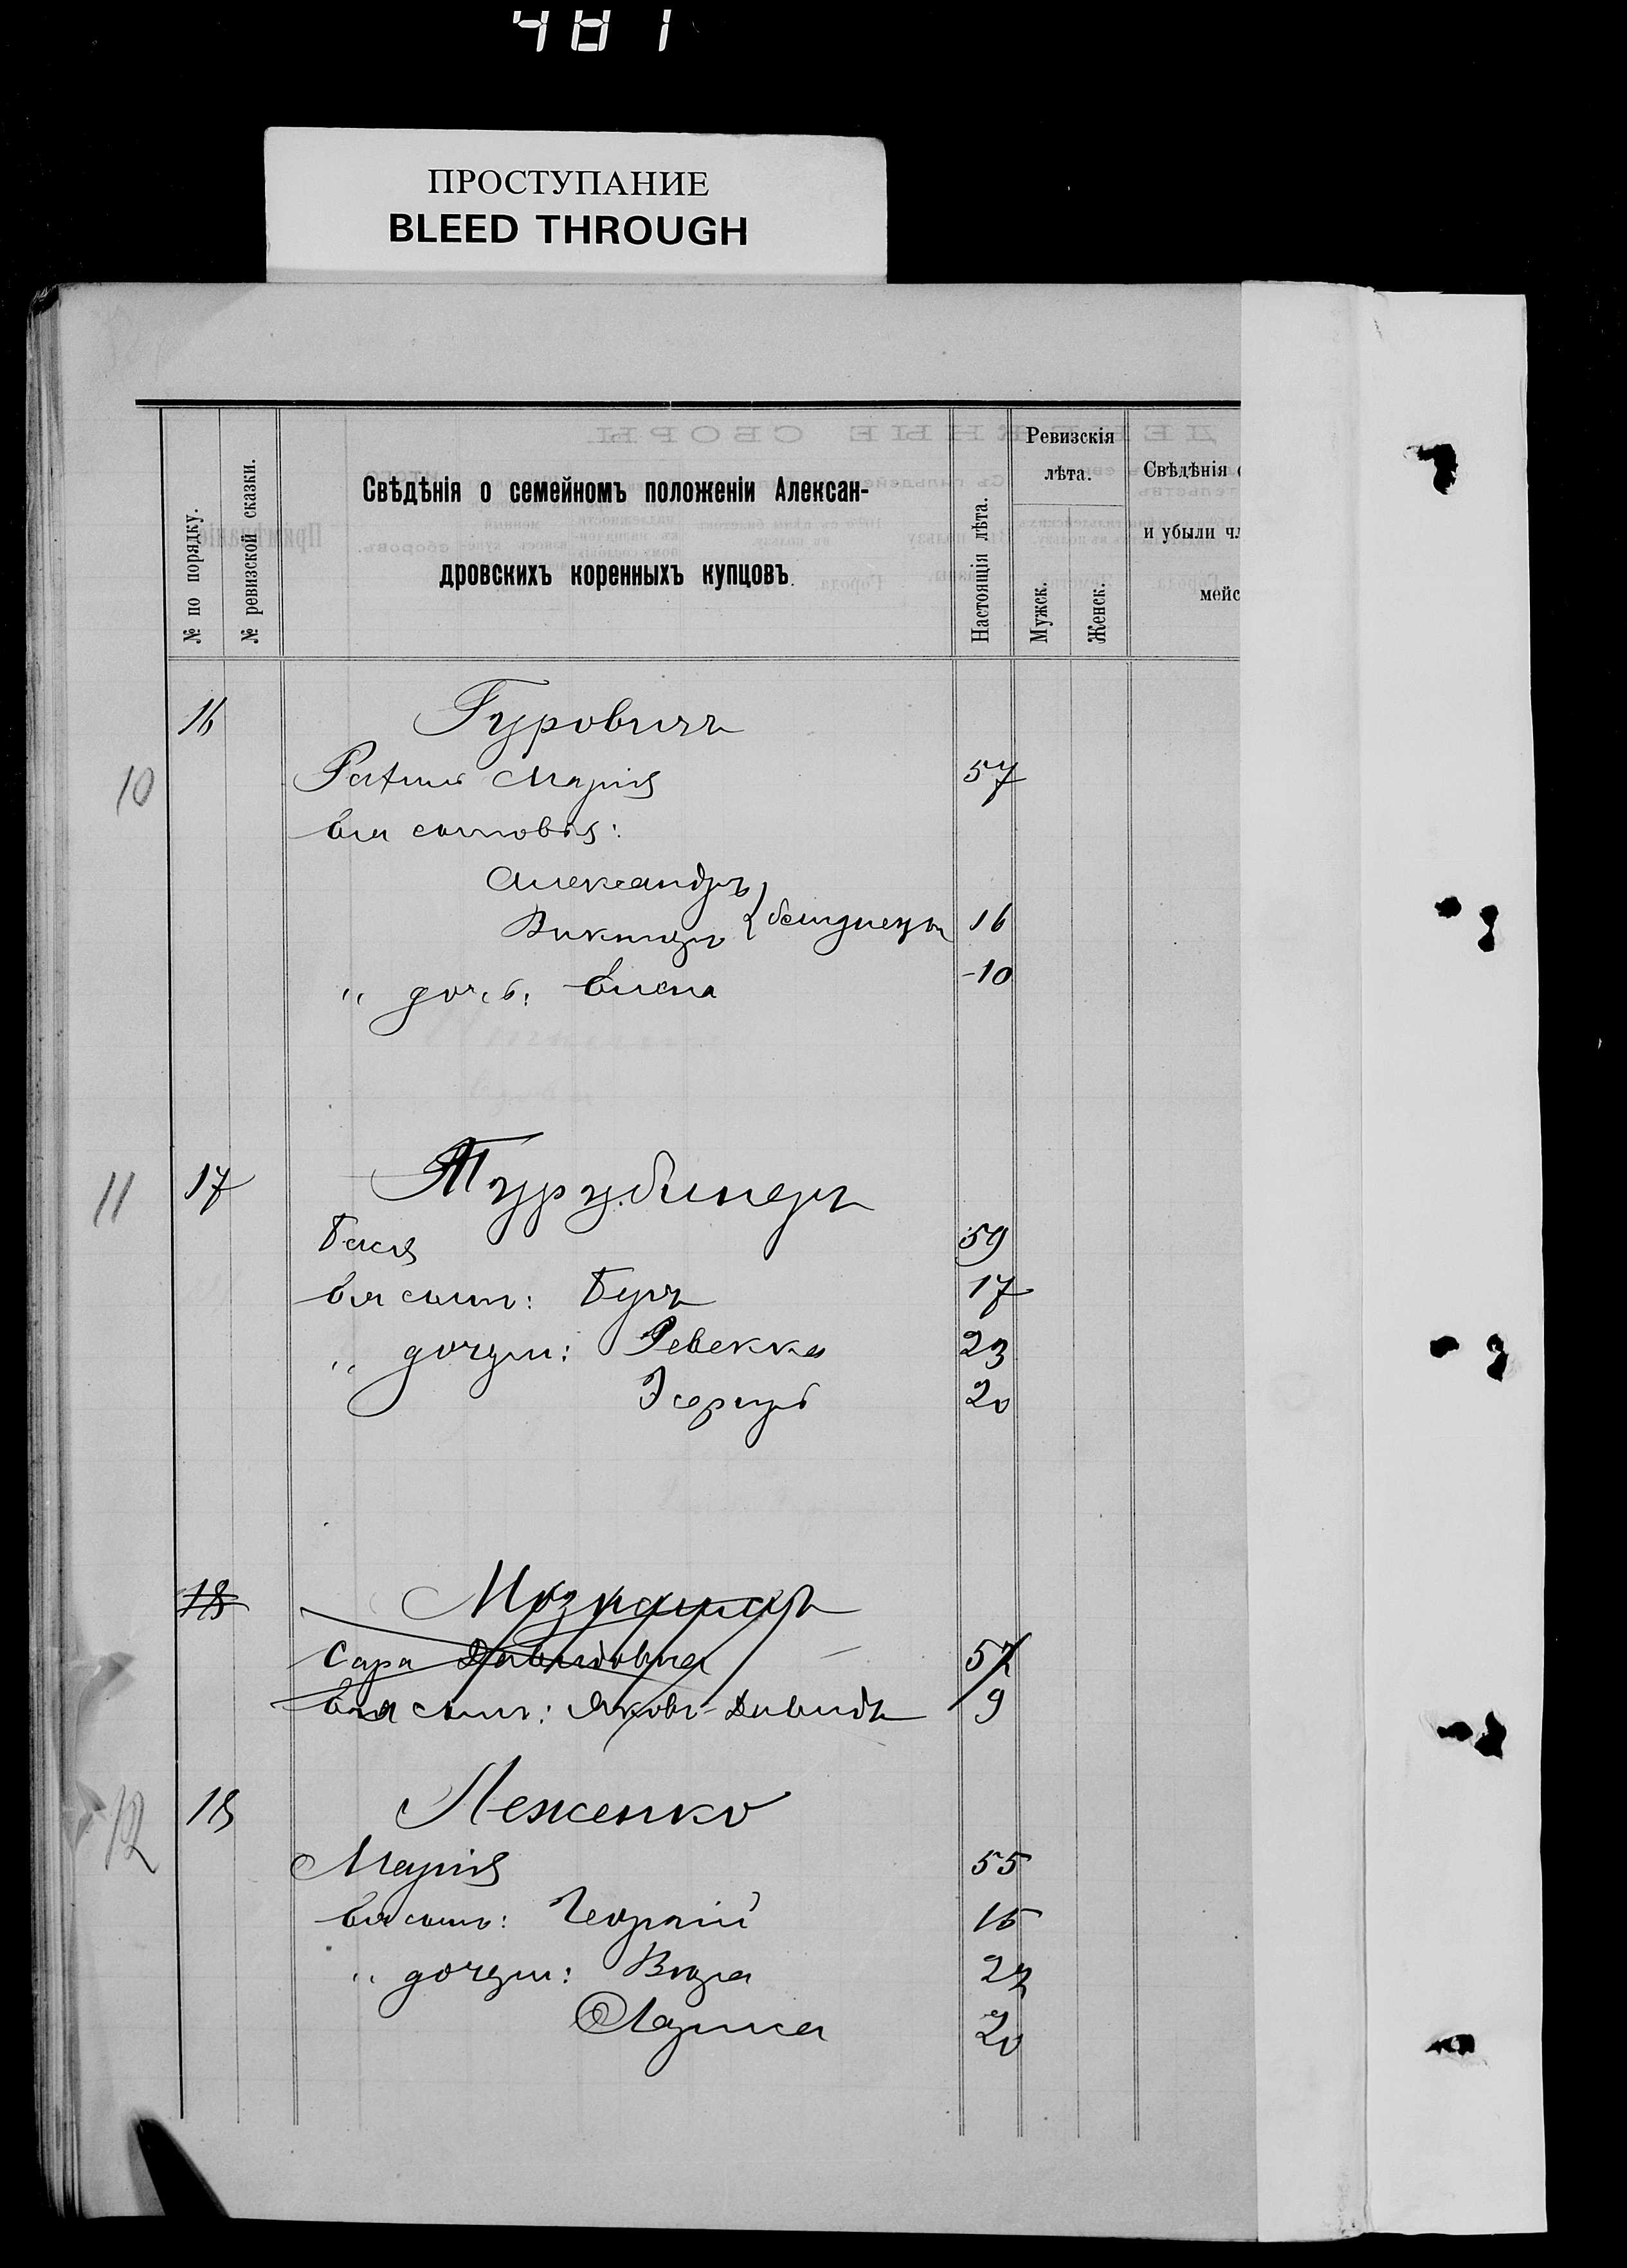 481
ПРОСТУПАНИЕ
BLEED THROUGH
№ по порядку.
№ ревизской сказки.
Свѣдѣнія о семейномъ положеніи Алексан-
дровскихъ коренныхъ купцовъ.
Настоящія лѣта.
Ревизскія
лѣта.
Мужск.
Женск.
Свѣдѣнія
и убыли чл
мейс
16 Гуровичъ
10 Марія 57
Ея сыновья:
Александръ
Викторъ } близнецы 16
" дочь: Елена -10
11 17 Турубинеръ
Бася 59
Ея сынъ: 17
" дочери: Ревекка 23
Эсѳирь 20
18
Сара Давидовна 57
Ея сынъ: Яковъ-Давидъ 9
12 18 Леженко
Марія 55
Ея сынъ: Георгій 15
" дочери: Вѣра 22
Лариса 20